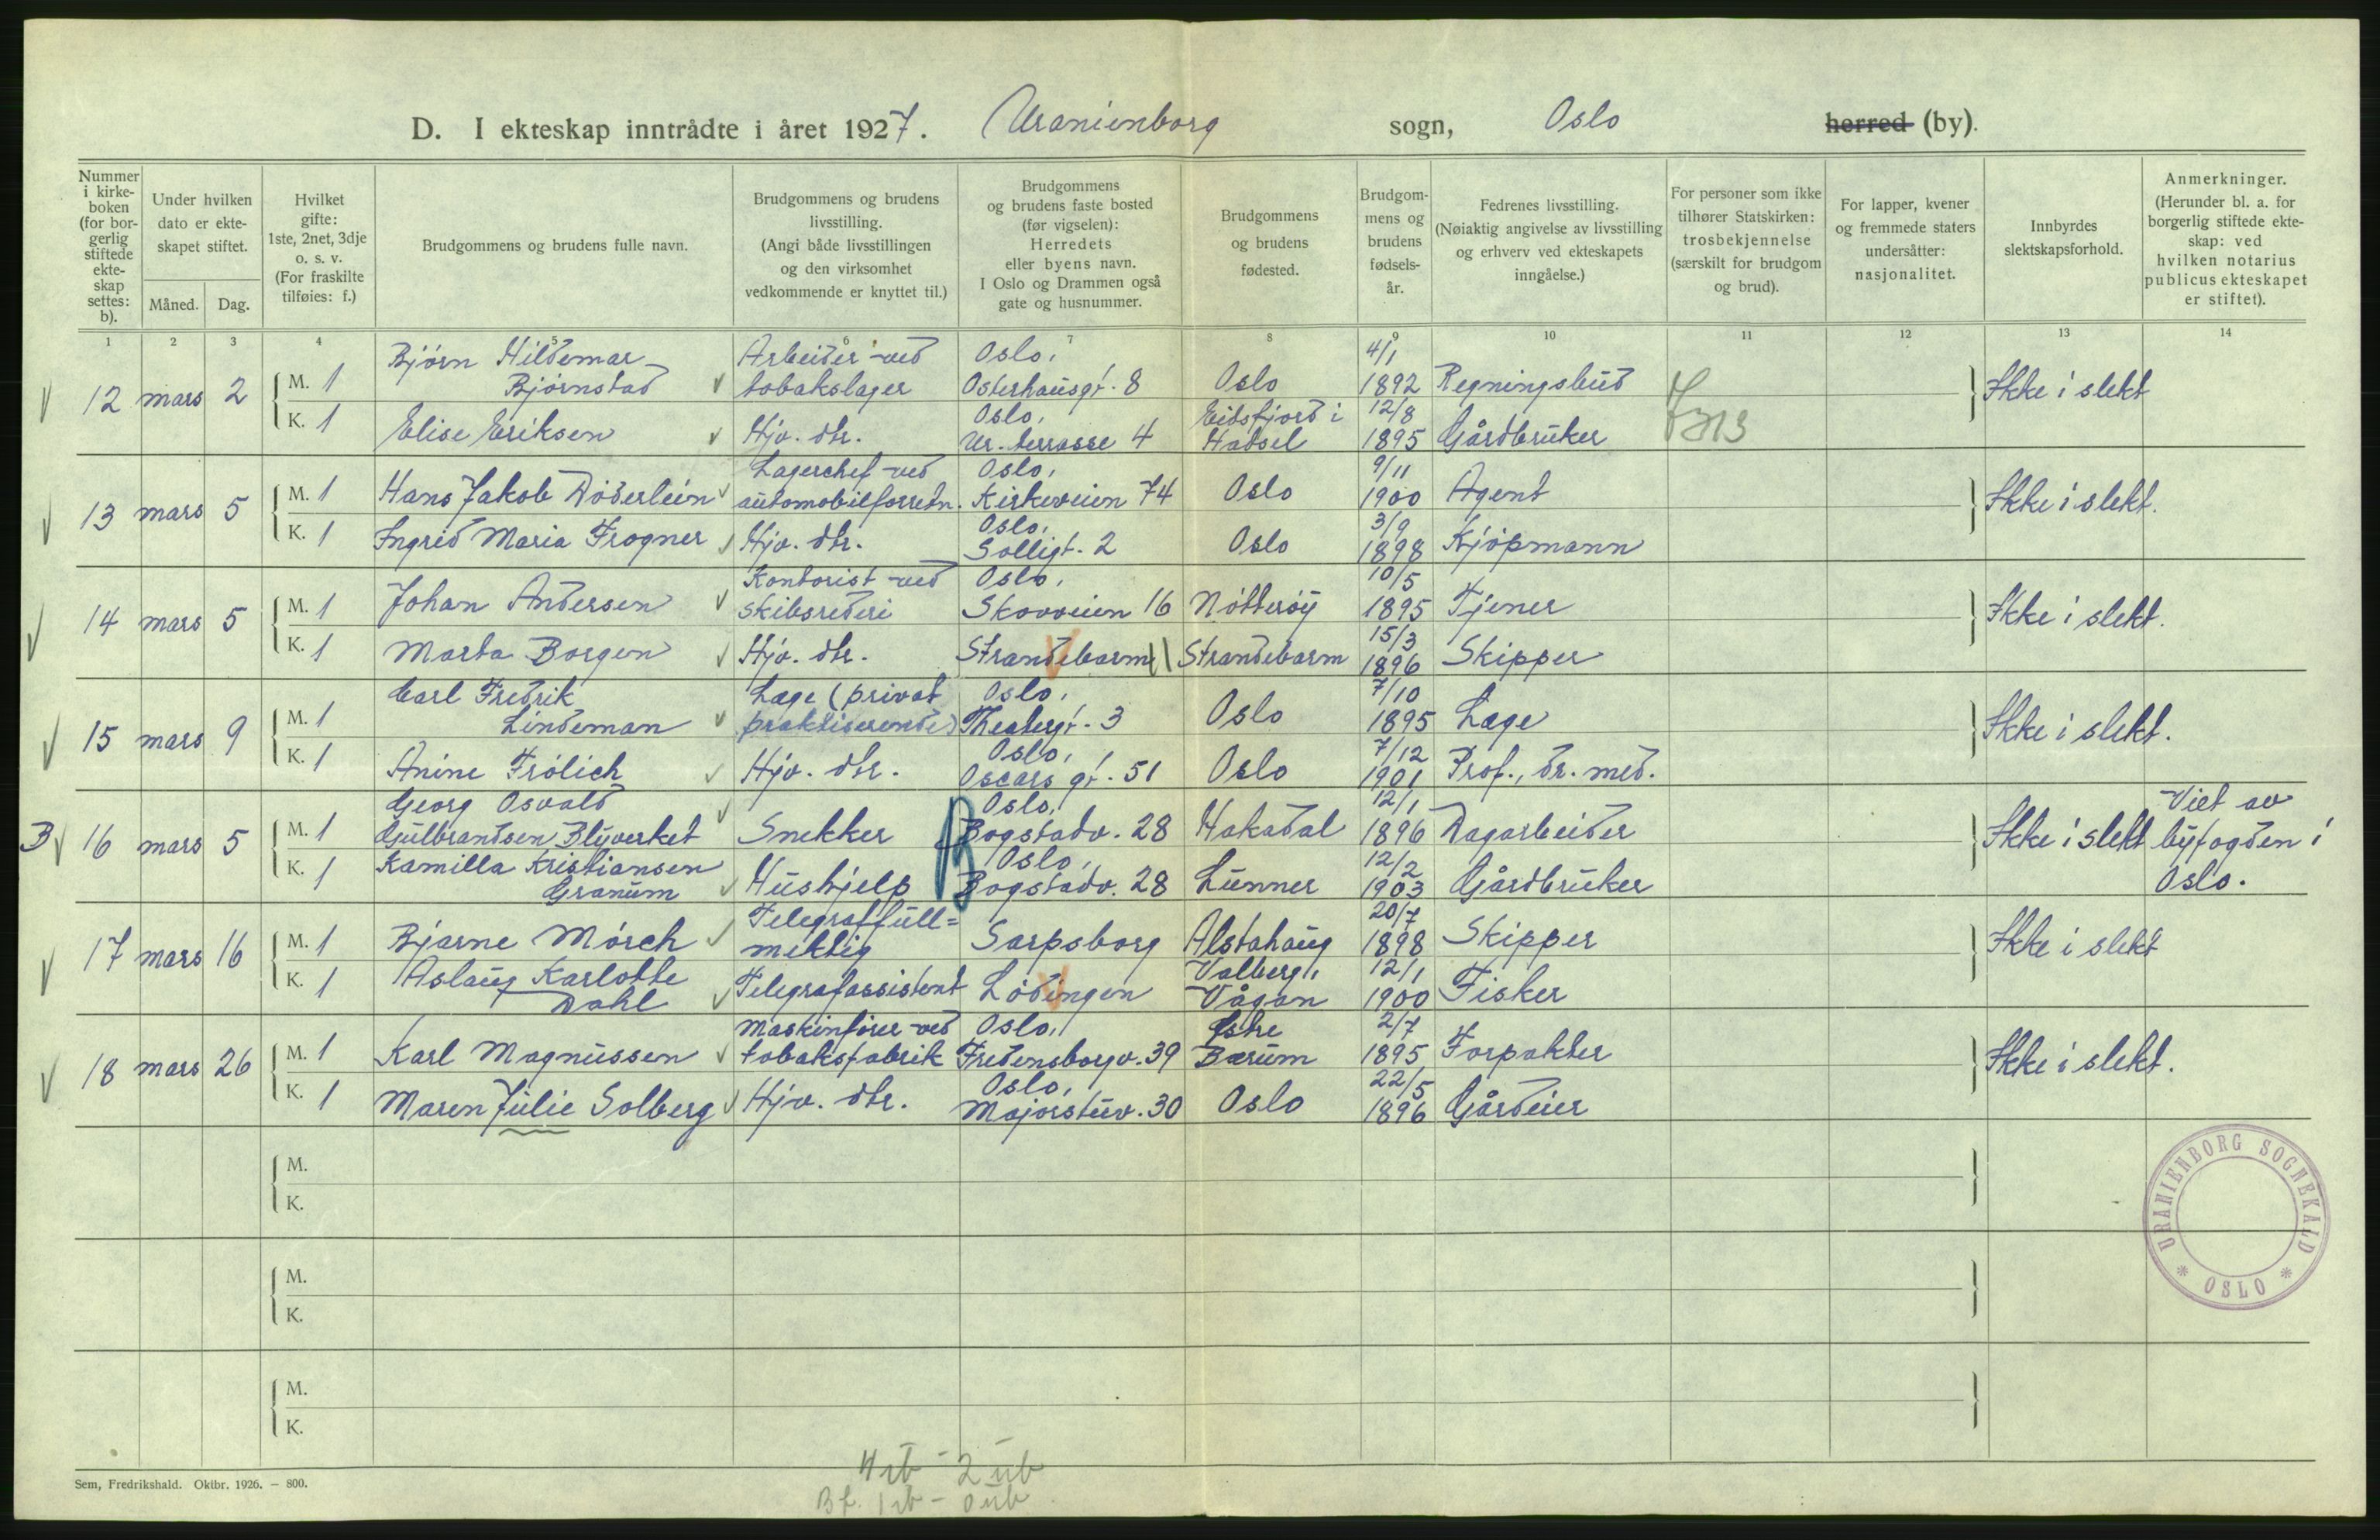 D. I ekteskap inntrådte i året 1927. Uranienborg sogn, Oslo herred (by).
Nummer i kirkeboken (for borgerlig stiftede ekteskap settes: b).
Under hvilken dato er ekteskapet stiftet.
Måned. Dag.
Hvilket gifte: 1ste, 2net, 3dje o. s. v. (For fraskilte tilføies: f.)
Brudgommens og brudens fulle navn.
Brudgommens og brudens livsstilling. (Angi både livsstillingen og den virksomhet vedkommende er knyttet til.)
Brudgommens og brudens faste bosted (før vigselen): Herredets eller byens navn. I Oslo og Drammen også gate og husnummer.
Brudgommens og brudens fødested.
Brudgommens og brudens fødselsår.
Fedrenes livsstilling. (Nøiaktig angivelse av livsstilling og erhverv ved ekteskapets inngåelse.)
For personer som ikke tilhører Statskirken: trosbekjennelse (særskilt for brudgom og brud).
For lapper, kvener og fremmede staters undersåtter: nasjonalitet.
Innbyrdes slektskapsforhold.
Anmerkninger. (Herunder bl. a. for borgerlig stiftede ekteskap: ved hvilken notarius publicus ekteskapet er stiftet).
1 2 3 4 5 6 7 8 9 10 11 12 13 14
12 mars 2 M. 1 Bjørn Hildemar Bjørnstad Arbeider ved tobakslager Oslo, Osterhausgt. 8 Oslo 4/1 1892 Regningsbud Ikke i slekt
K. 1 Elise Eriksen Hjv. dtr. Oslo, Ur. terrasse 4 Eidsfjord i Hadsel 12/8 1895 Gårdbruker
13 mars 5 M. 1 Hans Jakob Döderlein Lagerchef ved automobilforretn. Oslo, Kirkeveien 74 Oslo 9/11 1900 Agent Ikke i slekt.
K. 1 Ingrid Maria Frogner Hjv. dtr. Oslo, Solligt. 2 Oslo 3/9 1898 Kjøpmann
14 mars 5 M. 1 Johan Andersen Kontorist ved skibsrederi Oslo, Skovveien 16 Nøtterøy 10/5 1895 Tjener Ikke i slekt.
K. 1 Marta Borgen Hjv. dtr. Strandebarm Strandebarm 15/3 1896 Skipper
15 mars 9 M. 1 Carl Fredrik Lindeman Læge (privat praktiserende) Oslo, Theatergt. 3 Oslo 7/10 1895 Læge Ikke i slekt.
K. 1 Anine Frölich Hjv. dtr. Oslo, Oscars gt. 51 Oslo 7/12 1901 Prof., dr. med.
B 16 mars 5 M. 1 Georg Osvald Gulbrandsen Blyverket Snekker Oslo, Bogstadv. 28 Hakadal 12/1 1896 Dagarbeider Ikke i slekt Viet av byfogden i Oslo.
K. 1 Kamilla Kristiansen Granum Hushjelp Oslo, Bogstadv. 28 Lunner 12/2 1903 Gårdbruker
17 mars 16 M. 1 Bjarne Mörch Telegraffull=mektig Sarpsborg Alstahaug 20/7 1898 Skipper Ikke i slekt
K. 1 Aslaug Karlotte Dahl Telegrafassistent Lödingen Valberg, Vågan 12/1 1900 Fisker
18 mars 26 M. 1 Karl Magnussen Maskinfører ved tobaksfabrik Oslo, Fredensborgv. 39 Østre Bærum 2/7 1895 Forpakter Ikke i slekt.
K. 1 Maren Julie Solberg Hjv. dtr. Oslo, Majorstuv. 30 Oslo 22/5 1896 Gårdeier
M.
K.
M.
K.
M.
K.
URANIENBORG SOGNEKALD * OSLO *
Sem, Fredrikshald. Oktbr. 1926. — 800.